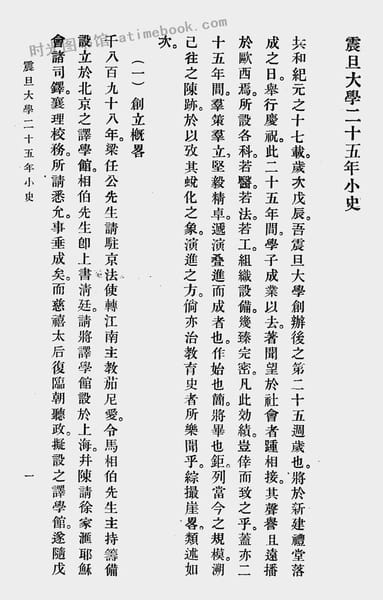 震旦大學二十五年小史
共和紀元之十七載。歲次戊辰。吾震旦大學創辦後之第二十五週歲也。將於新建禮堂落
成之日。舉行慶祝。此二十五年間。學子成業以去。著聞望於社會者。踵相接。其聲譽且遠播
於歐西焉。所設各科。若醫若法若工。組織設備。幾臻完密。凡此効績。豈倖而致之乎。蓋亦二
十五年間。羣策羣立。堅毅精卓。遞演叠進而成者也。作始也簡。將畢也鉅。列當今之規模。溯
已往之陳跡。於以攷其蛻化之象。演進之方。倘亦治教育史者所樂聞乎。綜撮崖畧。類述如
次。
(一) 創立概畧
千八百九十八年。梁任公先生請駐京法使轉江南主教茹尼愛。令馬相伯先生主持籌備
設立於北京之譯學館。相伯先生卽上書清廷。請將譯學館設於上海。幷陳請徐家滙耶穌
會諸司鐸。襄理校務。所請悉允。事垂成矣。而慈禧太后復臨朝聽政。擬設之譯學館。遂隨戊
震旦大學二十五年小史
一
atimebook.com